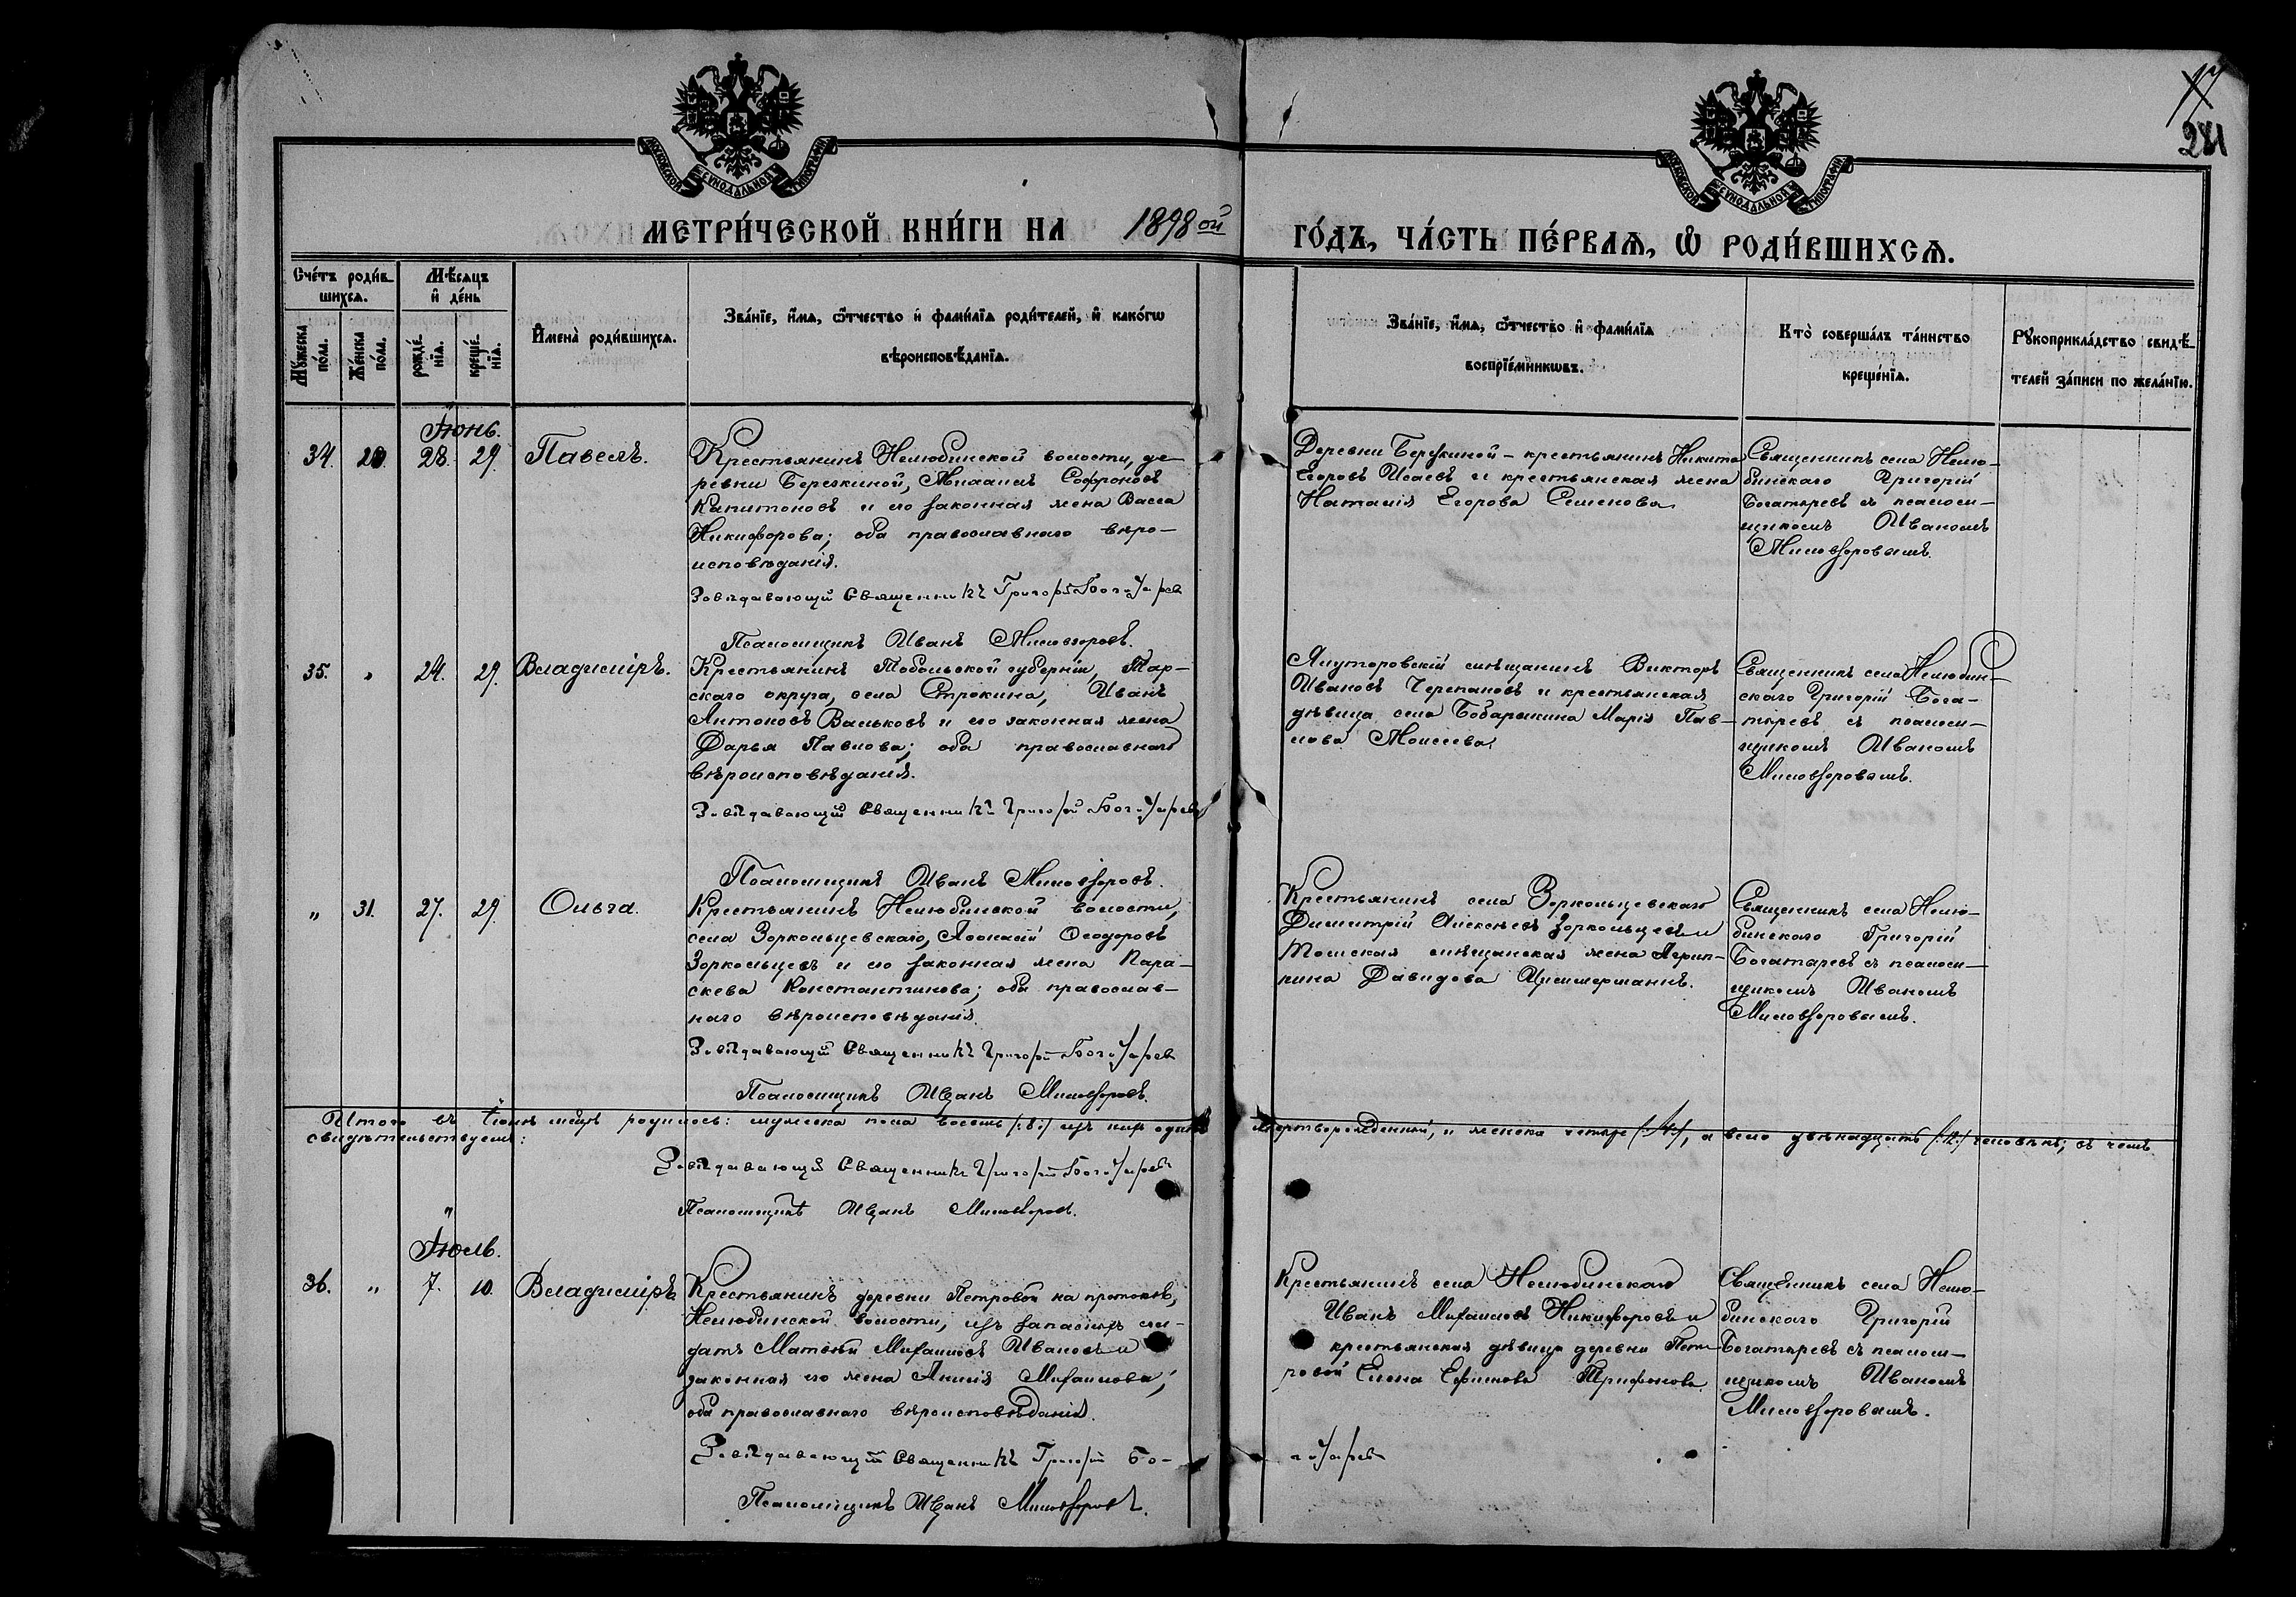 17
281
МОСКОВСКОЙ СУНОДАЛЬНОЙ ТИПОГРАФІИ
МОСКОВСКОЙ СУНОДАЛЬНОЙ ТИПОГРАФІИ
МЕТРИ́ЧЕСКОЙ КНИ́ГИ НА 1898 ой ГО́ДЪ, ЧА́СТЬ ПЕ́РВАѦ, Ѡ РОДИ́ВШИХСѦ.
Сче́тъ роди́в-
шихсѧ.
Мꙋ́жеска по́ла.
Же́нска по́ла.
Мѣ́сѧцъ
и де́нь
рожде́нїѧ.
креще́нїѧ.
И҆мена̀ роди́вшихсѧ.
Зва́нїе, и҆́мѧ, ѻ҆́тчество и҆ фами́лїѧ роди́телей, и҆ како́гѡ
вѣроисповѣ́данїѧ.
Зва́нїе, и҆́мѧ, ѻ҆́тчество и҆ фами́лїѧ
воспрїе́мникѡвъ.
Кто̀ соверша́лъ та́инство
креще́нїѧ.
Рꙋкоприкла́дство свидѣ́-
телей за́писи по жела́нїю.
Іюнь.
34. 28. 29. Павелъ.
Крестьянинъ Нелюбинской волости, де-
ревни Березкиной, Михаилъ Софроновъ
Капитоновъ и его законная жена Васса
Никифорова; оба православнаго вѣро-
исповѣданія.
Завѣдывающій Священникъ Григорій Богатыревъ
Псаломщикъ Иванъ Миловзоровъ.
Деревни Березкиной - крестьянинъ Никита
Егоровъ Исаевъ и крестьянская жена
Наталія Егорова Семенова.
Священникъ села Нелю-
бинскаго Григорій
Богатыревъ съ псаломи-
щикомъ Иваномъ
Миловзоровымъ.
35. " 24. 29. Владиміръ.
Крестьянинъ Тобольской губерніи, Тар-
скаго округа, села Строкина, Иванъ
Антоновъ Вальковъ и его законная жена
Дарья Павлова; оба православнаго
вѣроисповѣданія.
Завѣдывающій Священникъ Григорій Богатыревъ
Псаломщикъ Иванъ Миловзоровъ.
Ялуторовскій мѣщанинъ Викторъ
Ивановъ Черепановъ и крестьянская
дѣвица села Бобарыкина Марія Пав-
лова Моисеева.
Священникъ села Нелюбин-
скаго Григорій Бога-
тыревъ съ псаломи-
щикомъ Иваномъ
Миловзоровымъ.
" 31. 27. 29. Ольга.
Крестьянинъ Нелюбинской волости,
села Зоркольцевскаго, Аѳонасій Ѳеодоровъ
Зоркольцевъ и его законная жена Пара-
скева Константинова; оба православ-
наго вѣроисповѣданія.
Завѣдывающій Священникъ Григорій Богатыревъ
Псаломщикъ Иванъ Миловзоровъ.
Крестьянинъ села Зоркольцевскаго
Димитрій Алексѣевъ Зоркольцевъ и
Томская мѣщанская жена Агрип-
пина Давидова Циммерманъ.
Священникъ села Нелю-
бинскаго Григорій
Богатыревъ съ псаломи-
щикомъ Иваномъ
Миловзоровымъ.
Итого въ Іюнѣ мѣцѣ родилось: мужеска пола восемь (:8:) изъ нихъ одинъ мертворожденный, и женска четыре (:4:), а всего двѣнадцать (:12:) человѣкъ; въ чемъ
свидѣтельствуемъ:
Завѣдывающій Священникъ Григорій Богатыревъ
Псаломщикъ Иванъ Миловзоровъ.
Іюль.
36. " 7. 10. Владиміръ
Крестьянинъ деревни Петровой на протокѣ,
Нелюбинской волости, изъ запасныхъ сол-
датъ Матвѣй Михаиловъ Ивановъ и
законная его жена Анисія Михаилова;
оба православнаго вѣроисповѣданія.
Завѣдывающій Священникъ Григорій Бо-
гатыревъ
Псаломщикъ Иванъ Миловзоровъ.
Крестьянинъ села Нелюбинскаго
Иванъ Михаиловъ Никифоровъ и
крестьянская дѣвица деревни Пет-
ровой Елена Ефимова Трифонова.
Священникъ села Нелю-
бинскаго Григорій
Богатыревъ съ псаломи-
щикомъ Иваномъ
Миловзоровымъ.